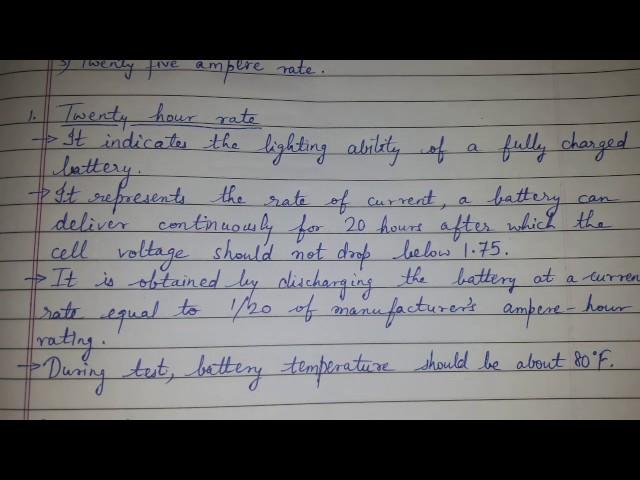 3) Twenty five ampere rate.
1. Twenty hour rate
→ It indicates the lighting ability of a fully charged
battery.
→ It represents the rate of current, a battery can
deliver continuously for 20 hours after which the
cell voltage should not drop below 1.75.
→ It is obtained by discharging the battery at a curren
rate equal to 1/20 of manufacturer's ampere-hour
rating.
→ During test, battery temperature should be about 80°F.